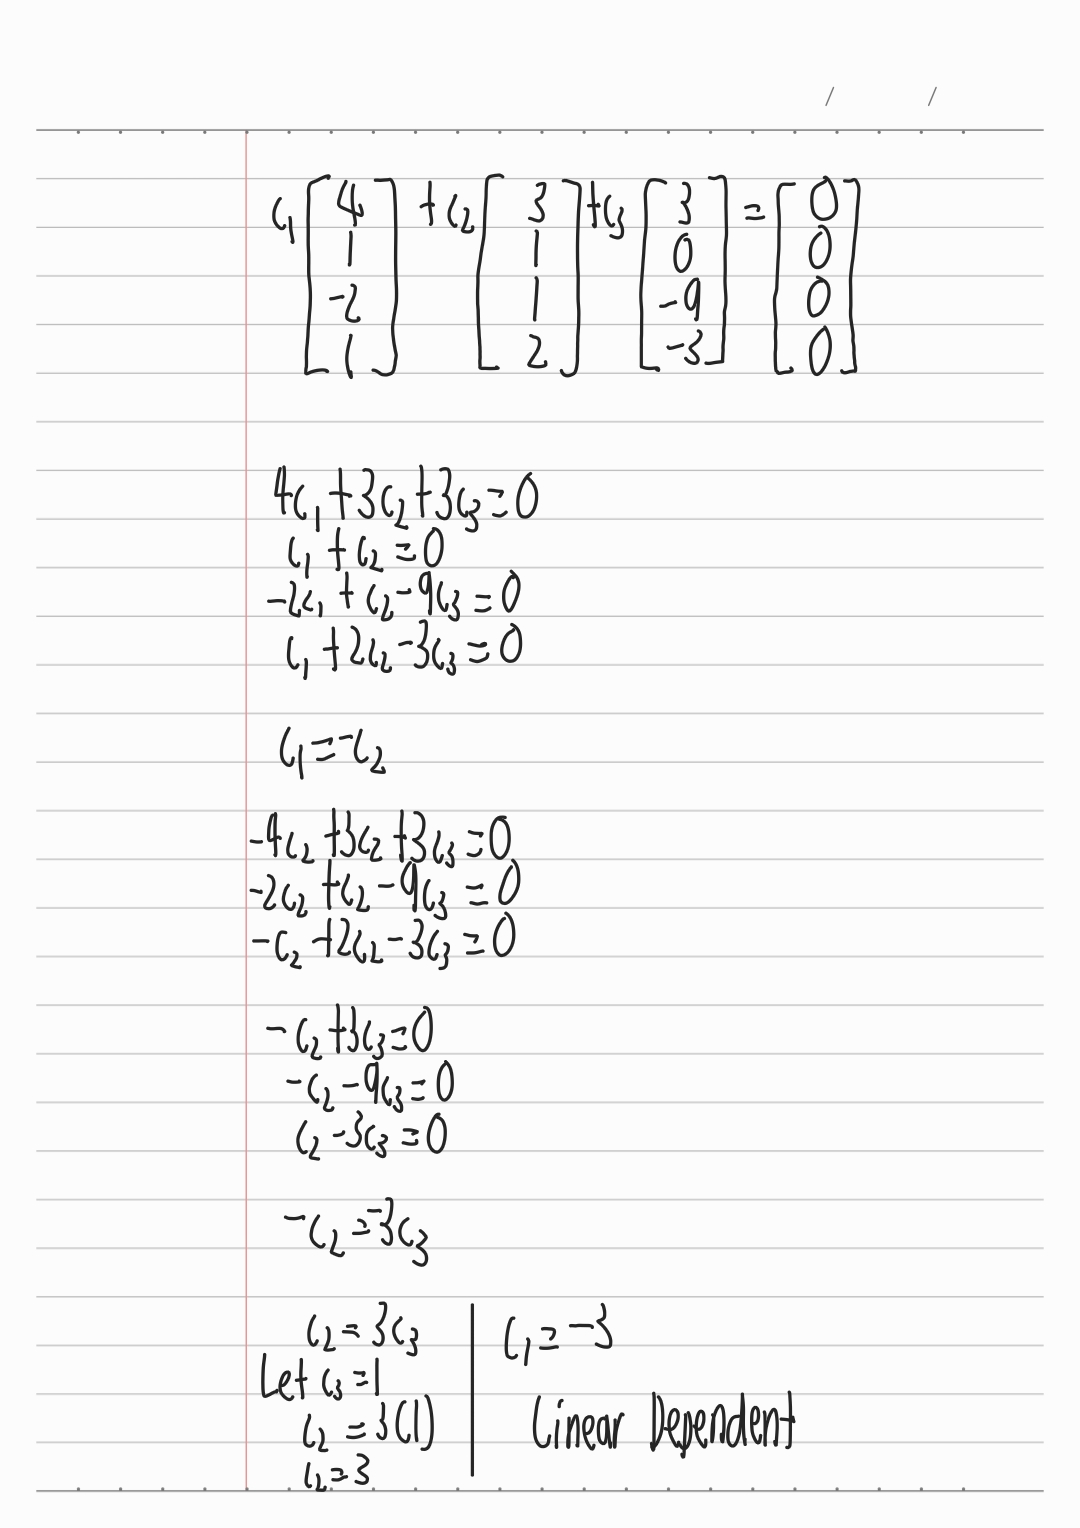 c₁ [4 1 -2 1] + c₂ [3 1 1 2] + c₃ [3 0 -9 -3] = [0 0 0 0]
4c₁ + 3c₂ + 3c₃ = 0
c₁ + c₂ = 0
-2c₁ + c₂ - 9c₃ = 0
c₁ + 2c₂ - 3c₃ = 0
c₁ = -c₂
-4c₂ + 3c₂ + 3c₃ = 0
-2c₂ + c₂ - 9c₃ = 0
-c₂ + 2c₂ - 3c₃ = 0
-c₂ + 3c₃ = 0
-c₂ - 9c₃ = 0
c₂ - 3c₃ = 0
-c₂ = -3c₃
c₂ = 3c₃
Let c₃ = 1
c₂ = 3(1)
c₂ = 3
c₁ = -3
Linear Dependent